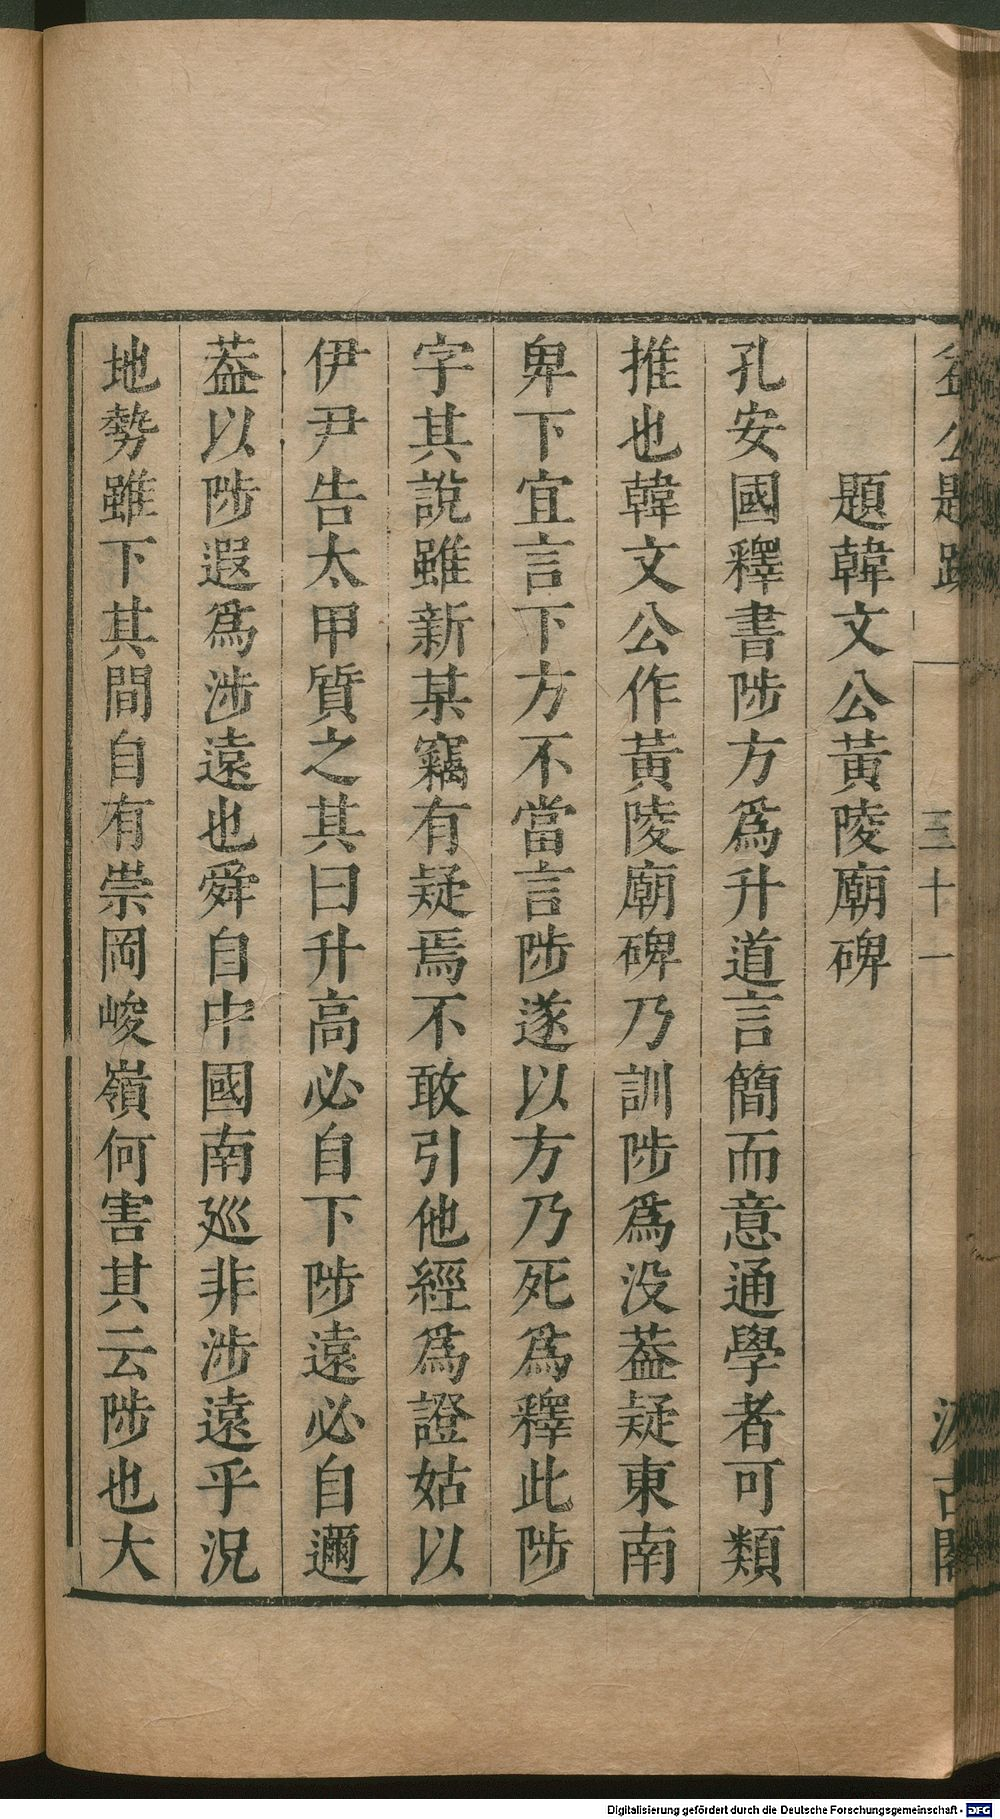 益公題跋
三十一
汲古閣
題韓文公黃陵廟碑
孔安國釋書陟方爲升道言簡而意通學者可類
推也韓文公作黃陵廟碑乃訓陟爲没葢疑東南
卑下宜言下方不當言陟遂以方乃死爲釋此陟
字其說雖新某竊有疑焉不敢引他經爲證姑以
伊尹告太甲質之其曰升高必自下陟遠必自邇
葢以陟遐爲涉遠也舜自中國南廵非涉遠乎況
地勢雖下其間自有崇岡峻嶺何害其云陟也大
Digitalisierung gefördert durch die Deutsche Forschungsgemeinschaft - DFG